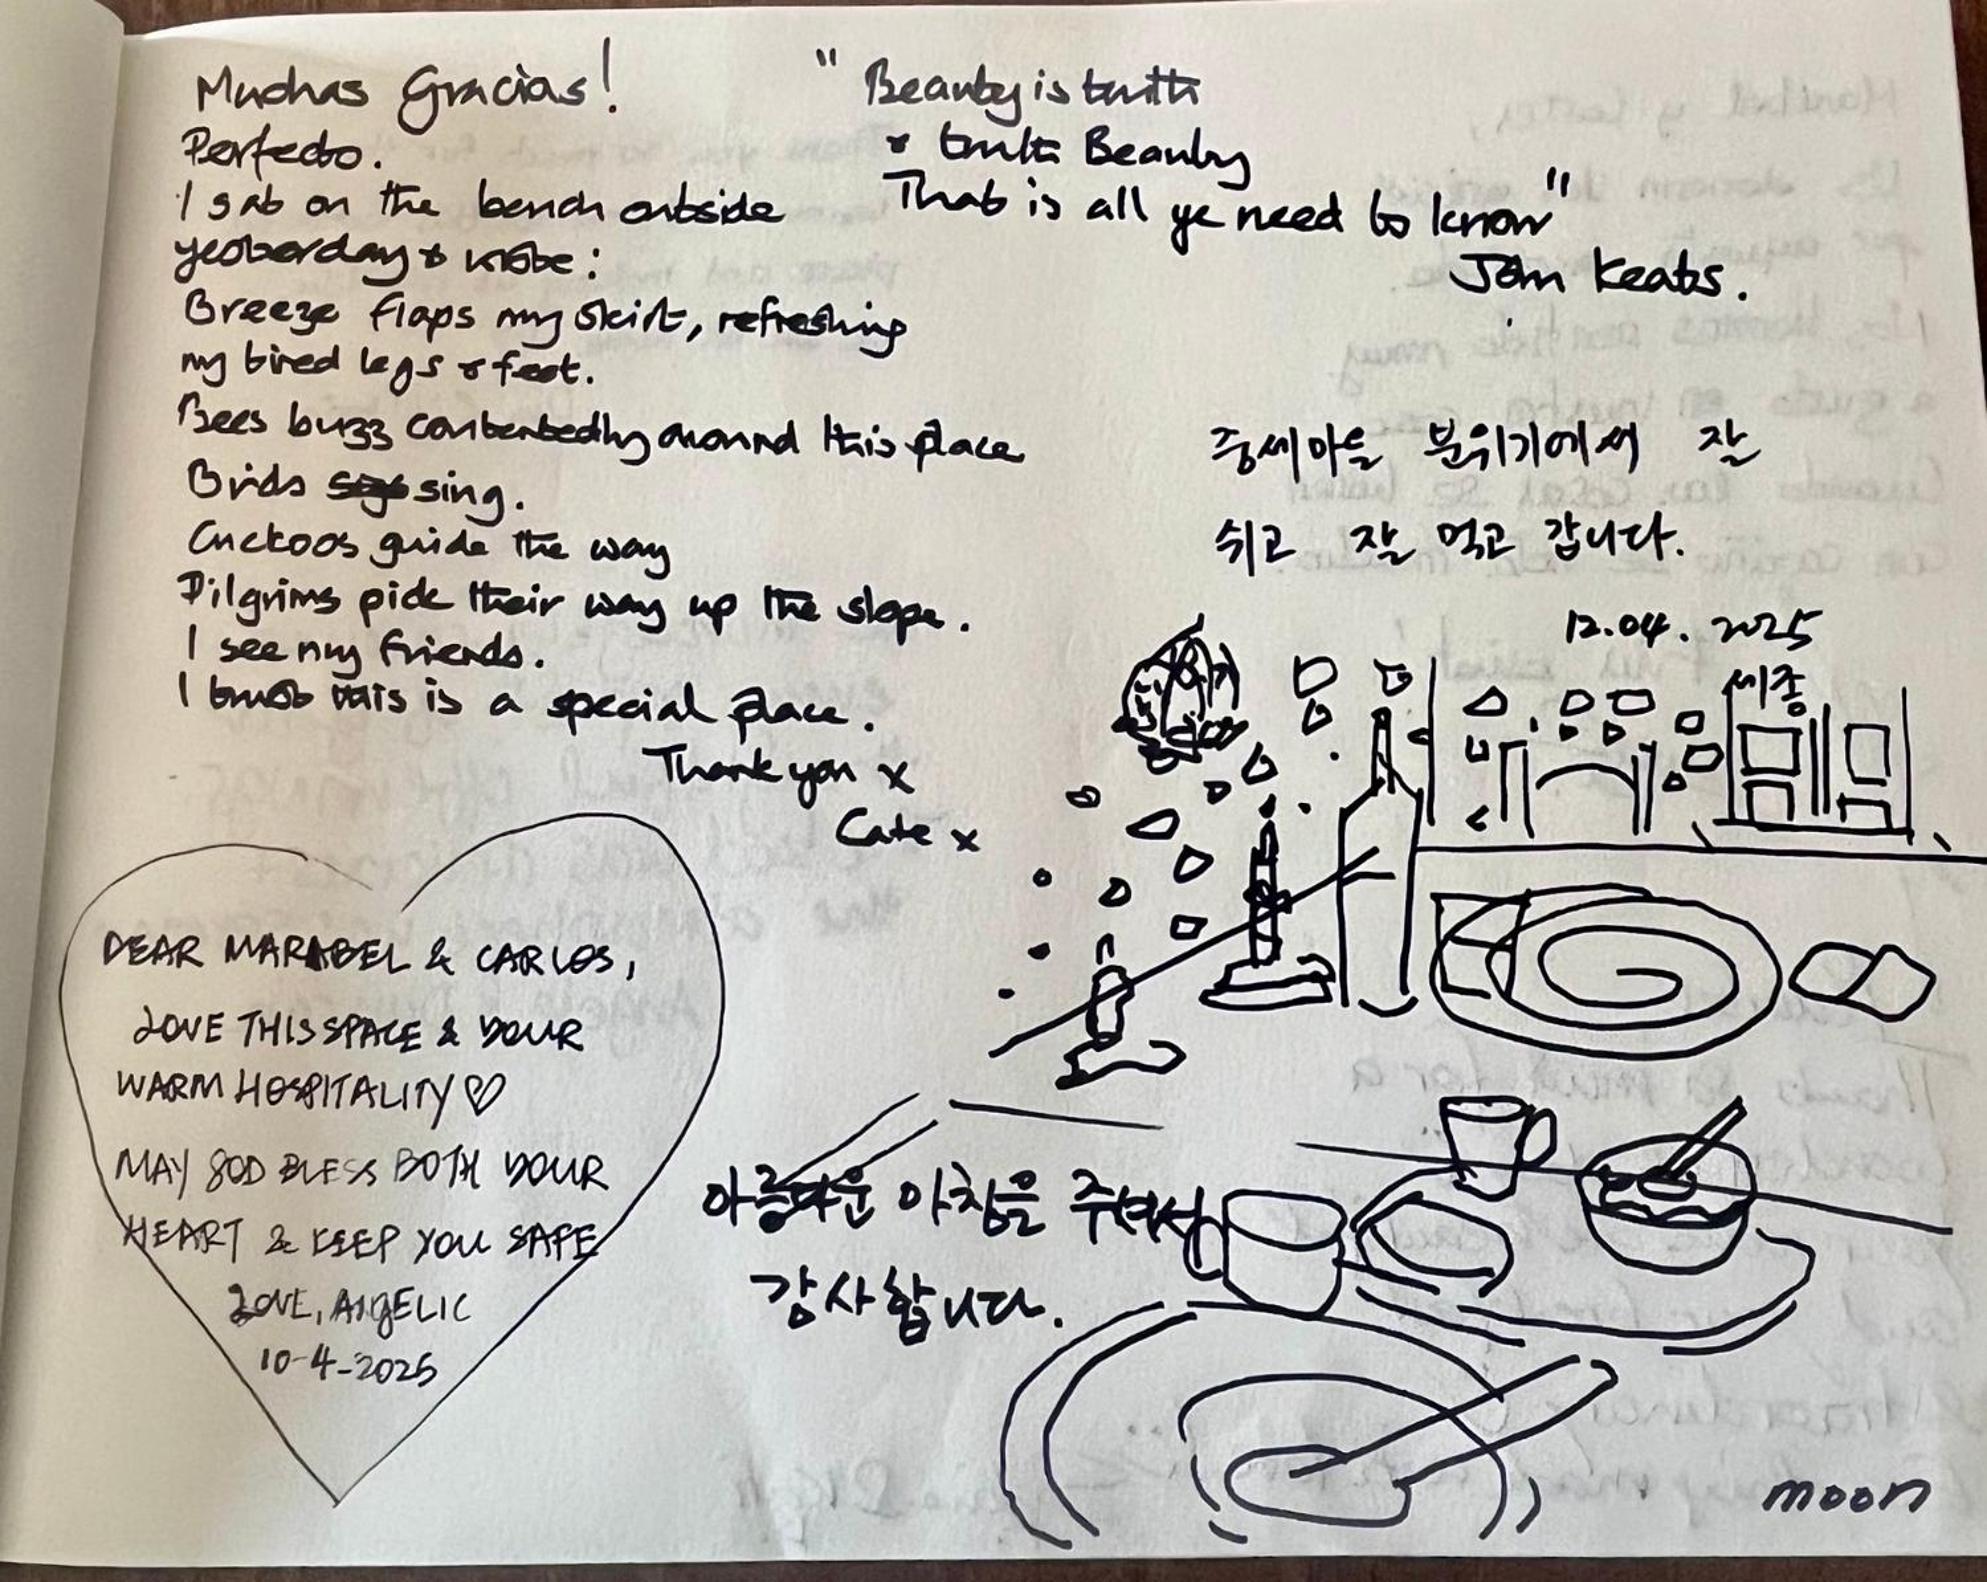 Muchas Gracias!
Perfecto.
I sat on the bench outside
yesterday & wrote:
Breeze flaps my skirt, refreshing
my tired legs & feet.
Bees buzz contentedly around this place
Birds sing.
Cuckoos guide the way
Pilgrims pick their way up the slope.
I see my friends.
I trust this is a special place.
Thank you x
Cate x
" Beauty is truth
& truth Beauty
That is all ye need to know"
John Keats.
중세마을 분위기에서 잘
쉬고 잘 먹고 갑니다.
12.04. 2025
세종
DEAR MARABEL & CARLOS,
LOVE THIS SPACE & YOUR
WARM HOSPITALITY ♡
MAY GOD BLESS BOTH YOUR
HEART & KEEP YOU SAFE
LOVE, ANGELIC
10-4-2025
아름다운 아침을 주셔서
감사합니다.
moon